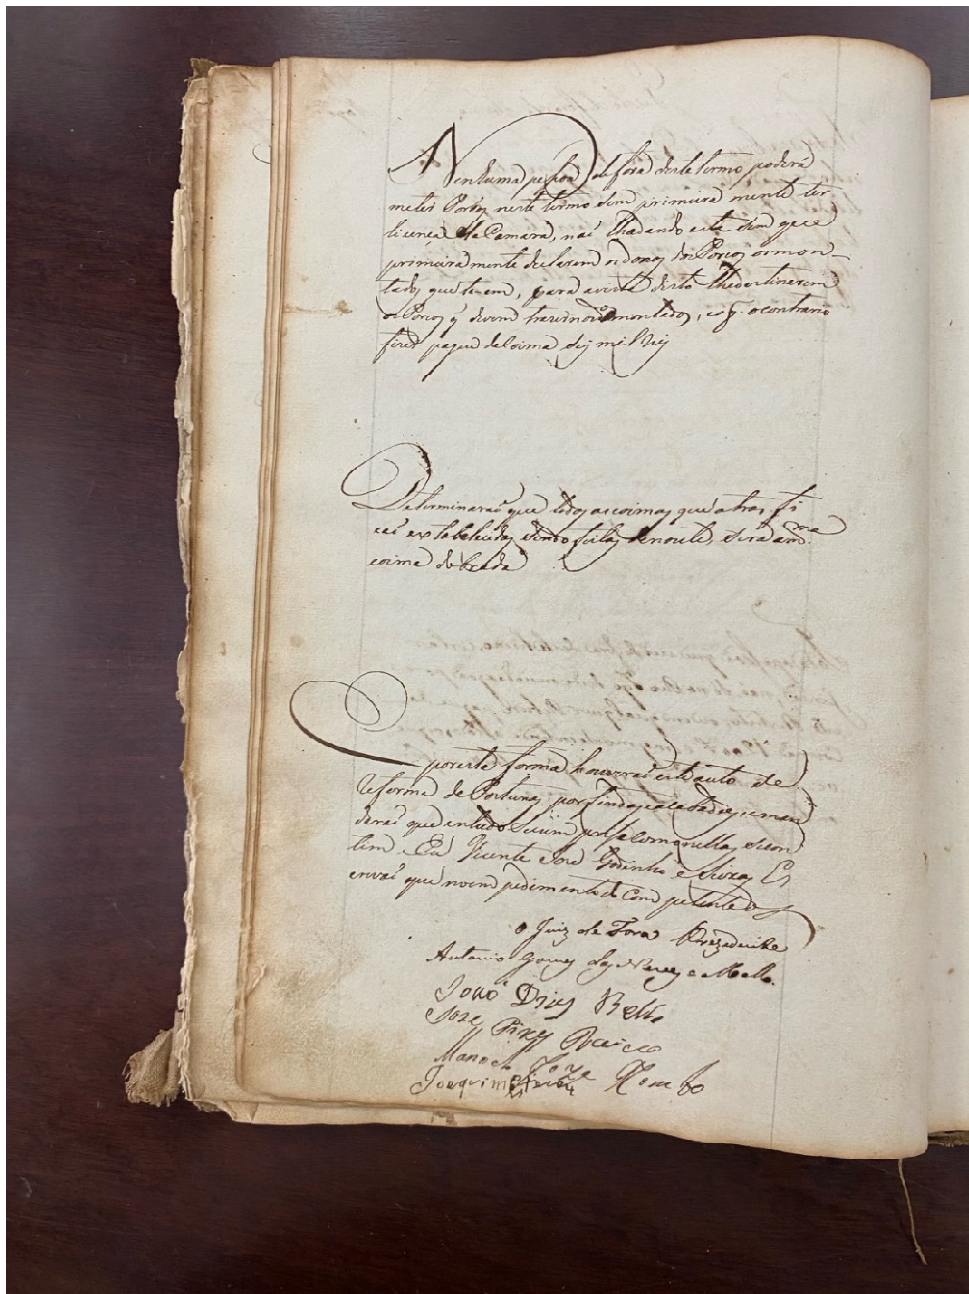 Nenhuma pessoa de fora deste termo poderá
meter Porcos neste termo sem primeira mente ter
licença da Camara, naõ lha dando esta sem que
primeira mente declarem os donos dos Porcos os mon-
tados que tem, para avista disto lhe destinarem
os Porcos q devem trazer nos montados, e q. o contrario
fizer pague de Coima seis mil Reis
Determinaraõ que todas as coimas que atras fi
caõ estabalecidas sendo feitas de noute, será a m.ma
coima dobrada
por esta forma houveraõ este auto de
Reforma de Posturas por findo, e acabado, e man
daraõ que em tudo se cumpra como nellas se con
tem. Eu Vicente José Godinho e Es
crivaõ que no empedimento do Competente o
o Juiz de Fora Prezidente
Antonio Gomes e Mello.
Joaõ Dias
Joze Pires
Manoel Joze
Joaquim